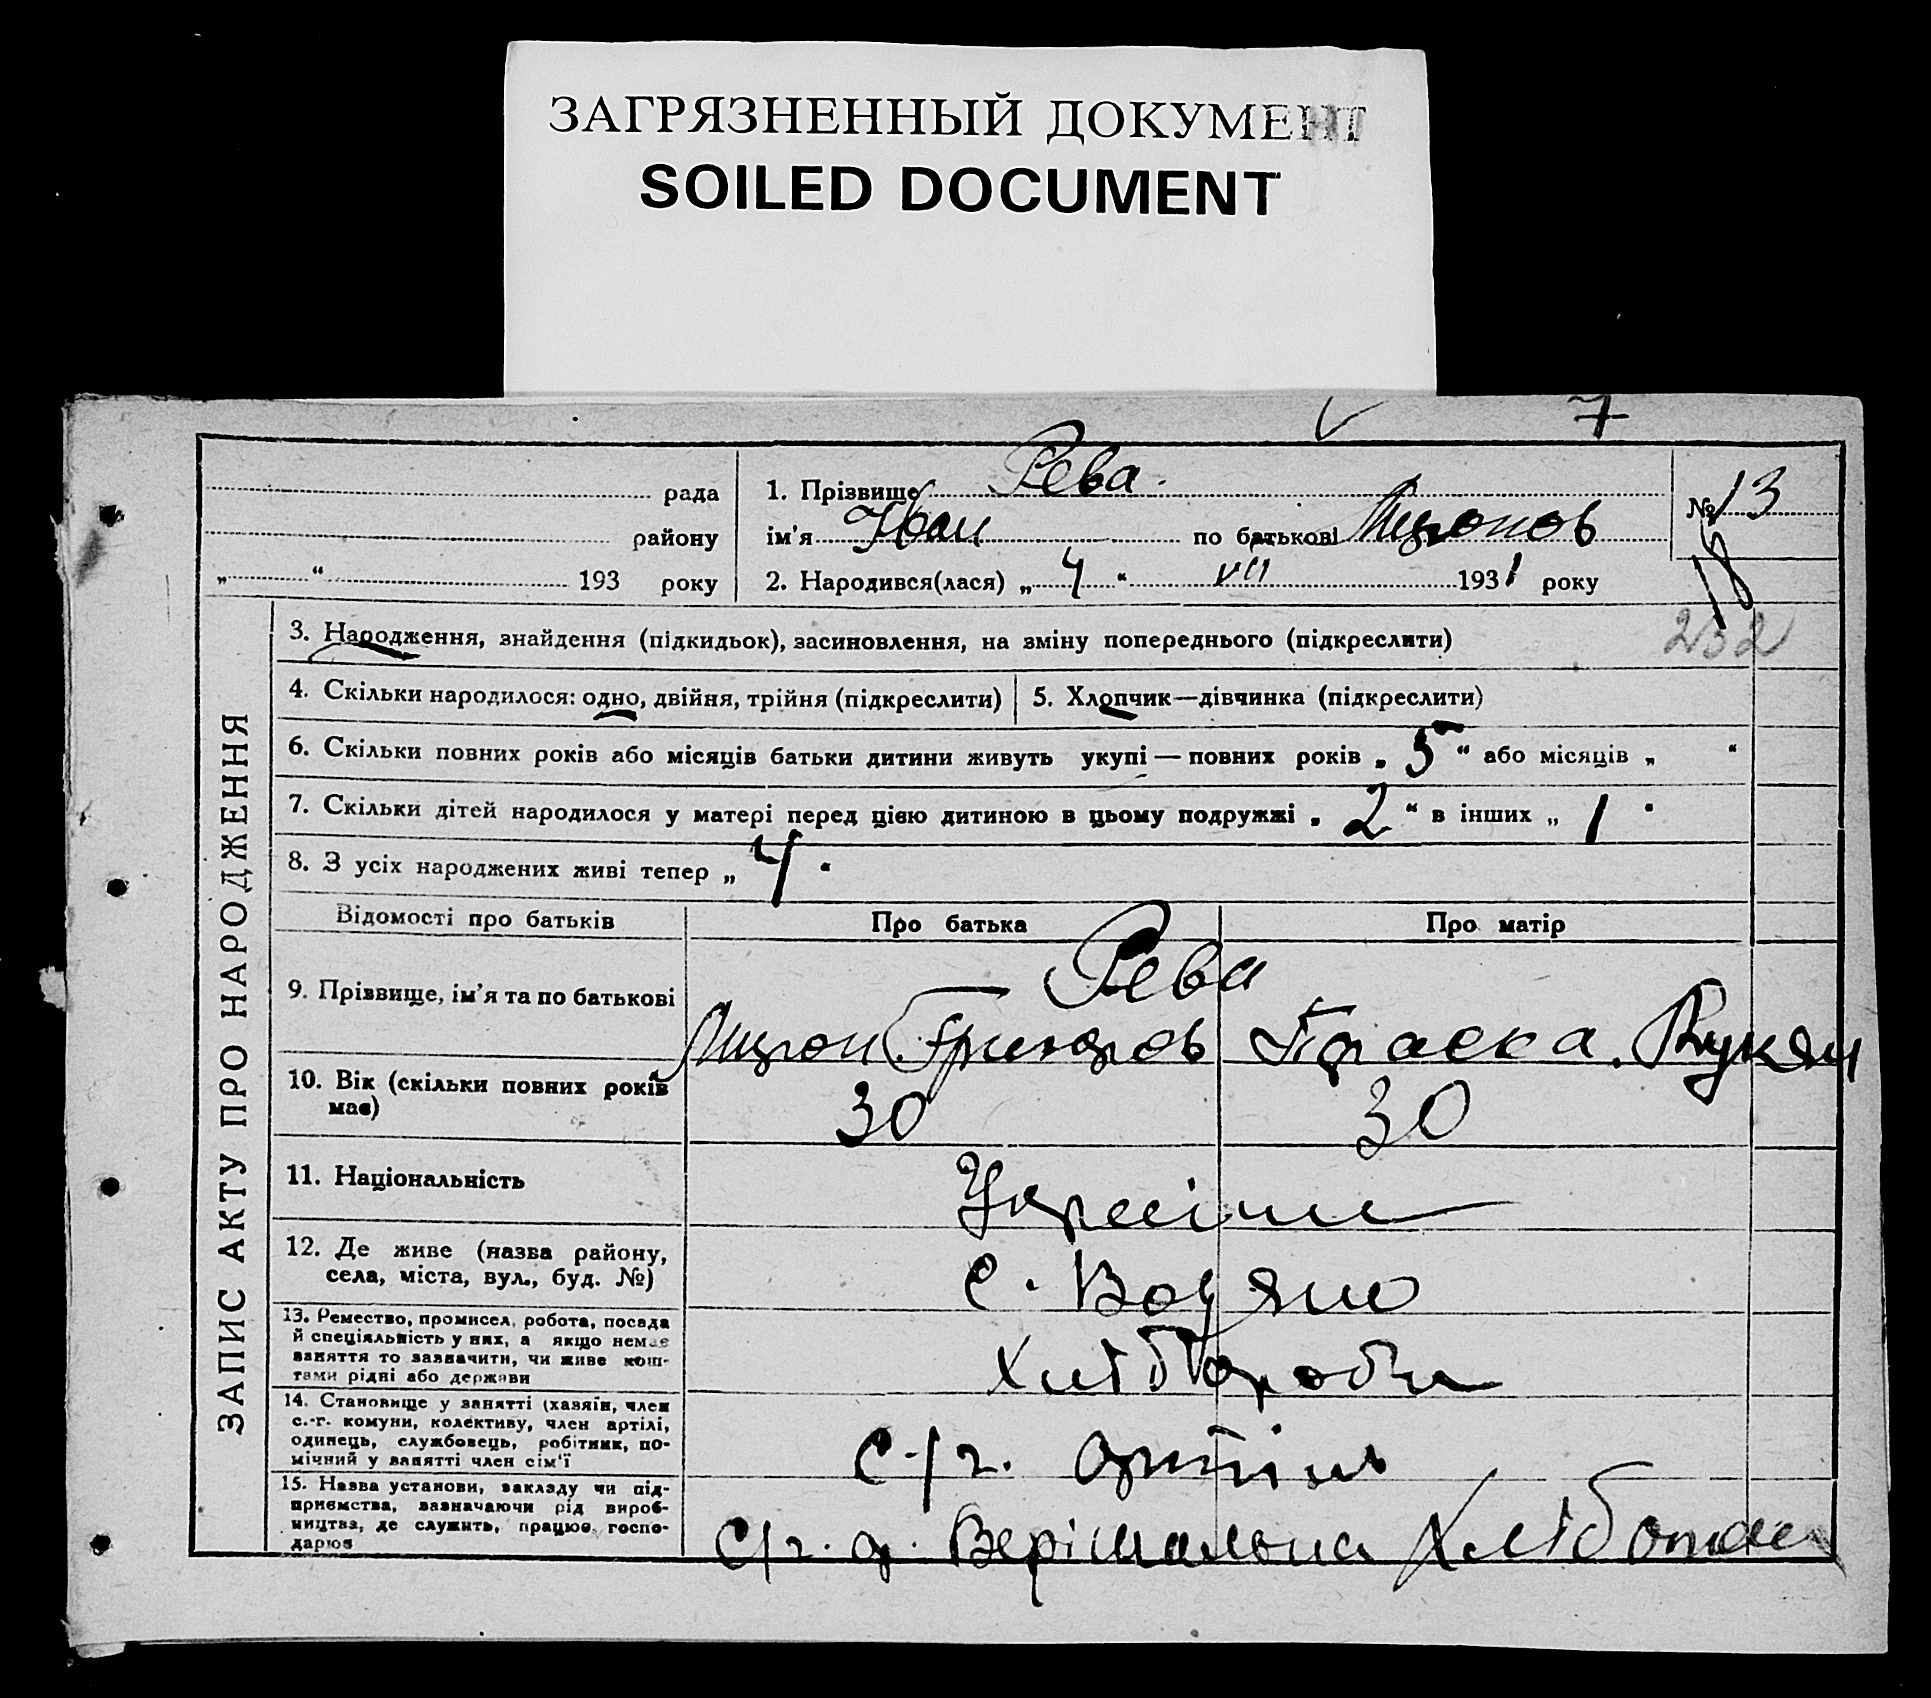 ЗАГРЯЗНЕННЫЙ ДОКУМЕНТ
SOILED DOCUMENT
7
рада
району
„ “ 193 року
1. Прізвище Рева
ім'я Іван по батькові Миронов
2. Народився(лася) „ 4 “ VII 1931 року
№ 13
18
232
ЗАПИС АКТУ ПРО НАРОДЖЕННЯ
3. Народження, знайдення (підкидьок), засиновлення, на зміну попереднього (підкреслити)
4. Скільки народилося: одно, двійня, трійня (підкреслити) 5. Хлопчик—дівчинка (підкреслити)
6. Скільки повних років або місяців батьки дитини живуть укупі — повних років „ 5 “ або місяців „ “
7. Скільки дітей народилося у матері перед цією дитиною в цьому подружжі „ 2 “ в інших „ 1 “
8. З усіх народжених живі тепер „ 4 “
Відомості про батьків Про батька Про матір
9. Прізвище, ім'я та по батькові Рева
Мирон Григоров Параска Лукян
10. Вік (скільки повних років має) 30 30
11. Національність Українці
12. Де живе (назва району,
села, міста, вул., буд. №) с. Водяно
13. Ремество, промисел, робота, посада
й спеціяльність у них, а якщо немає
заняття то зазначити, чи живе кош-
тами рідні або держави Хлібороби
14. Становище у занятті (хазяїн, член
с.-г. комуни, колективу, член артілі,
одинець, службовець, робітник, по-
мічний у занятті член сім'ї С/г. артіль
15. Назва установи, закладу чи під-
приємства, зазначаючи рід вироб-
ництва, де служить, працює, госпо-
дарює С/г. а.